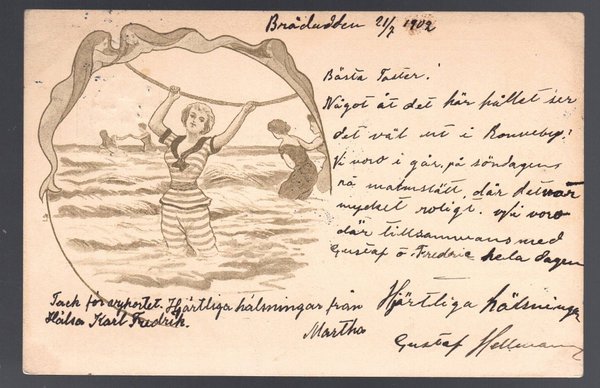 Brädudden 21/7 1902
Bästa Faster!
Något åt det här hållet ser
det väl ut i Ronneby?
Vi voro i går, på söndagens
på malmslätt, där det var
mycket roligt. Vi voro
där tillsammans med
Gustaf o. Fredric hela dagen
Hjärtliga hälsningar
Gustaf Hellmann
Tack för Hjärtliga hälsningar från
Hälsa Karl Fredrik.
Martha